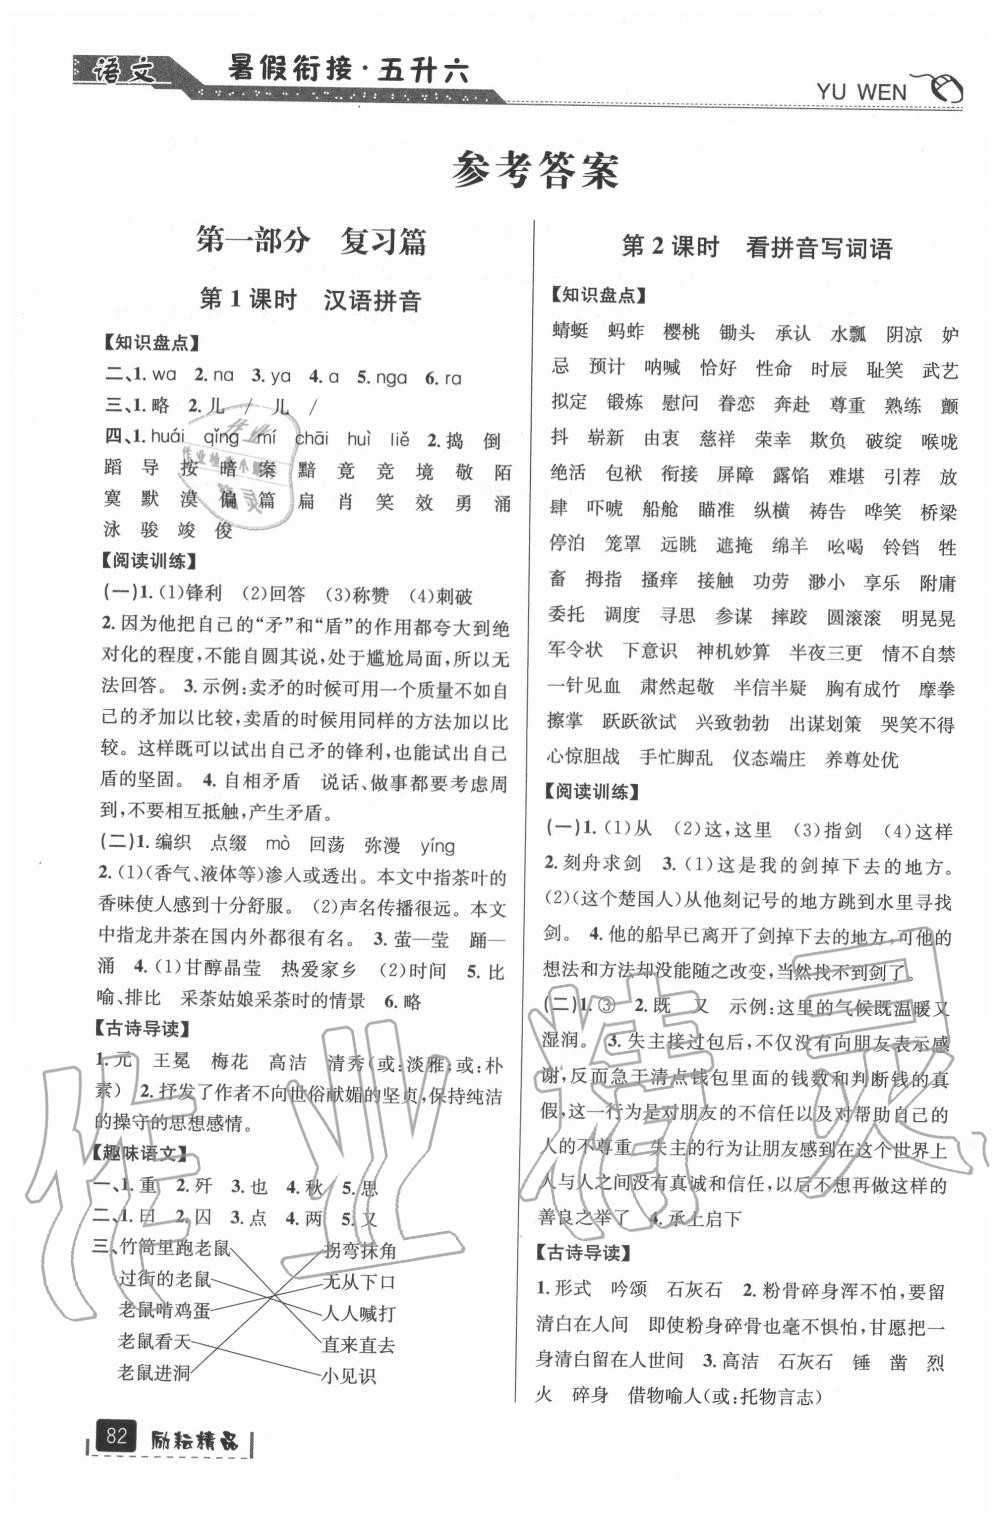 语文
暑假衔接·五升六
YU WEN
参考答案
第一部分 复习篇
第1课时 汉语拼音
【知识盘点】
二、1. wa 2. na 3. ya 4. a 5. nga 6. ra
三、1. 略 2. 儿 / 儿 /
四、1. huái qǐng mí chāi huì liě 2. 捣 倒
蹈 导 按 暗 案 黯 竟 竞 境 敬 陌
寞 默 漠 偏 篇 扁 肖 笑 效 勇 涌
泳 骏 竣 俊
【阅读训练】
(一)1. (1)锋利 (2)回答 (3)称赞 (4)刺破
2. 因为他把自己的“矛”和“盾”的作用都夸大到绝
对化的程度,不能自圆其说,处于尴尬局面,所以无
法回答。 3. 示例:卖矛的时候可以用一个质量不如自
己的矛加以比较,卖盾的时候用同样的方法加以比
较。这样既可以试出自己矛的锋利,也能试出自己
盾的坚固。 4. 自相矛盾 说话、做事都要考虑周
到,不要相互抵触,产生矛盾。
(二)1. 编织 点缀 mò 回荡 弥漫 yíng
2. (1)(香气、液体等)渗入或透出。本文中指茶叶的
香味使人感到十分舒服。 (2)声名传播很远。本文
中指龙井茶在国内外都很有名。 3. 萤—莹 踊—
涌 4. (1)甘醇晶莹 热爱家乡 (2)时间 5. 比
喻、排比 采茶姑娘采茶时的情景 6. 略
【古诗导读】
1. 元 王冕 梅花 高洁 清秀(或:淡雅;或:朴
素) 2. 抒发了作者不向世俗献媚的坚贞,保持纯洁
的操守的思想感情。
【趣味语文】
一、1. 重 2. 歼 3. 也 4. 秋 5. 思
二、1. 曰 2. 囚 3. 点 4. 两 5. 又
三、竹筒里跑老鼠 拐弯抹角
过街的老鼠 无从下口
老鼠啃鸡蛋 人人喊打
老鼠看天 直来直去
老鼠进洞 小见识
82 励耘精品
第2课时 看拼音写词语
【知识盘点】
蜻蜓 蚂蚱 樱桃 锄头 承认 水瓢 阴凉 妒
忌 预计 呐喊 恰好 性命 时辰 耻笑 武艺
拟定 锻炼 慰问 眷恋 奔赴 尊重 熟练 颤
抖 崭新 由衷 慈祥 荣幸 欺负 破绽 喉咙
绝活 包袱 衔接 屏障 露馅 难堪 引荐 放
肆 吓唬 船舱 瞄准 纵横 祷告 哗笑 桥梁
停泊 笼罩 远眺 遮掩 绵羊 吆喝 铃铛 牲
畜 拇指 搔痒 接触 功劳 渺小 享乐 附庸
委托 调度 寻思 参谋 摔跤 圆滚滚 明晃晃
军令状 下意识 神机妙算 半夜三更 情不自禁
一针见血 肃然起敬 半信半疑 胸有成竹 摩拳
擦掌 跃跃欲试 兴致勃勃 出谋划策 哭笑不得
心惊胆战 手忙脚乱 仪态端庄 养尊处优
【阅读训练】
(一)1. (1)从 (2)这,这里 (3)指剑 (4)这样
2. 刻舟求剑 3. (1)这是我的剑掉下去的地方。
(2)(这个楚国人)从他刻记号的地方跳到水里寻找
剑。 4. 他的船早已离开了剑掉下去的地方,可他的
想法和方法却没能随之改变,当然找不到剑了。
(二)1. ③ 2. 既 又 示例:这里的气候既温暖又
湿润。 3. 失主接过包后,不仅没有向朋友表示感
谢,反而急于清点钱包里面的钱数和判断钱的真
假,这一行为是对朋友的不信任以及对帮助自己的
人的不尊重 失主的行为让朋友感到在这个世界上
人与人之间没有真诚和信任,以后不想再做这样的
善良之举了 4. 承上启下
【古诗导读】
1. 形式 吟颂 石灰石 2. 粉骨碎身浑不怕,要留
清白在人间 即使粉身碎骨也毫不惧怕,甘愿把一
身清白留在人世间 3. 高洁 石灰石 锤 凿 烈
火 碎身 借物喻人(或:托物言志)
作业精灵